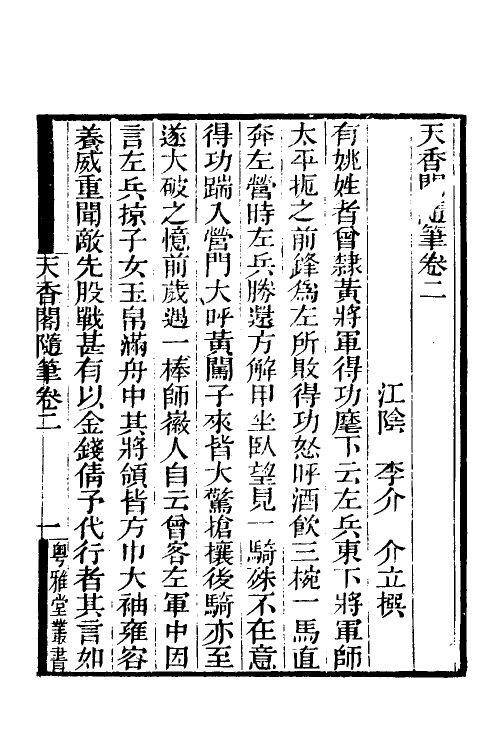 天香閣隨筆卷二
江陰 李介 介立撰
有姚姓者曾隸黃將軍得功麾下云左兵東下將軍師
太平扼之前鋒為左所敗得功怒呼酒飲三椀一馬直
奔左營時左兵勝還方解甲坐臥望見一騎殊不在意
得功踹入營門大呼黃闖子來皆大驚搶攘後騎亦至
遂大破之憶前歲遇一棒師徽人自云曾客左軍中因
言左兵掠子女玉帛滿舟中其將領皆方巾大袖雍容
養威重聞敵先股戰甚有以金錢倩予代行者其言如
天香閣隨筆卷二
一
粵雅堂叢書